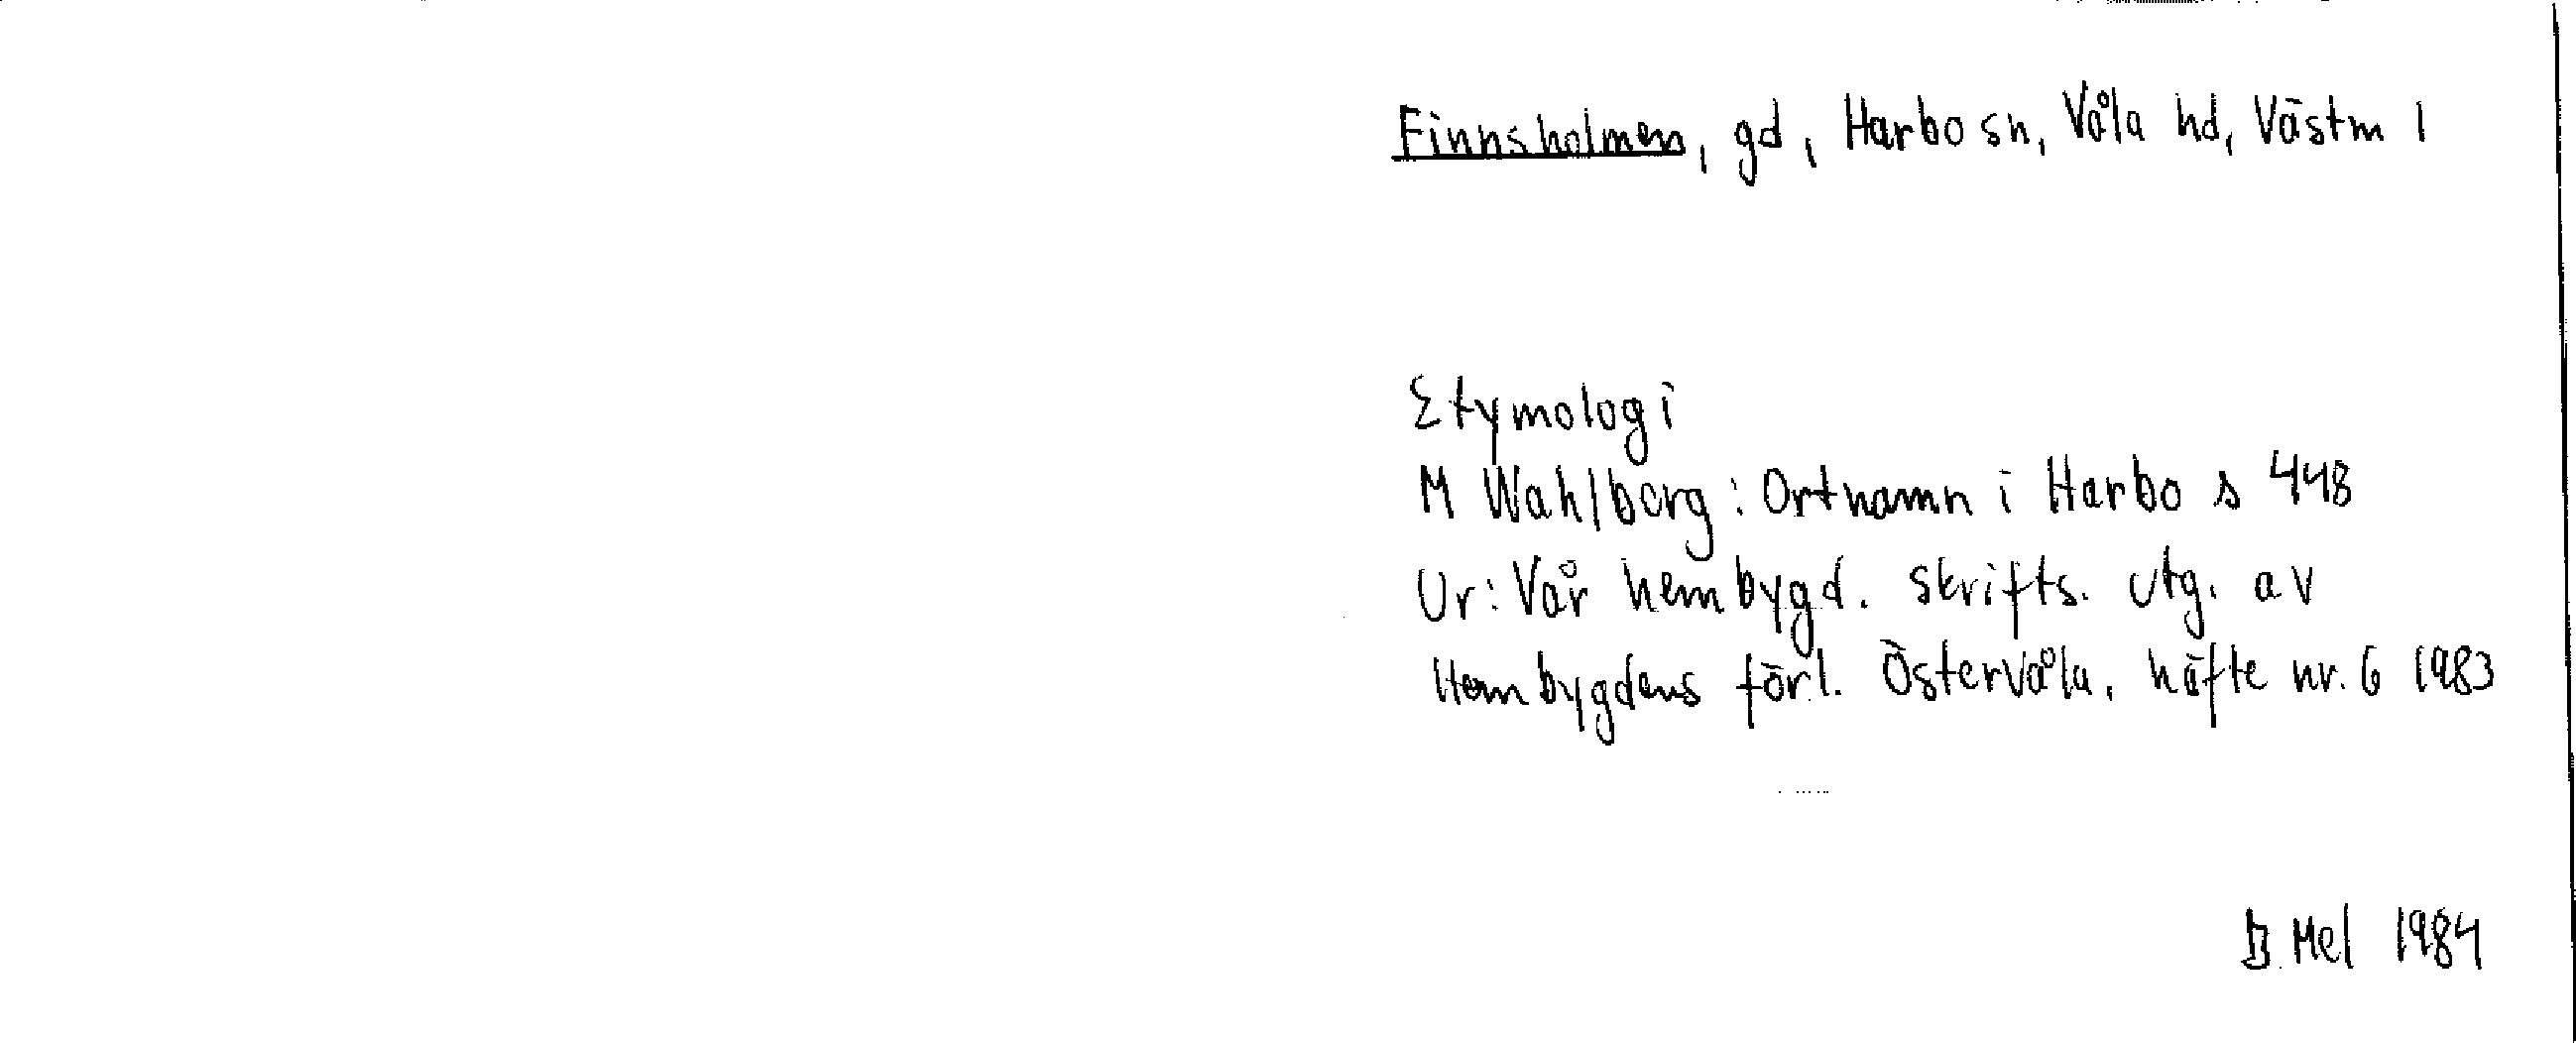 Finnsholmen, gd, Harbo sn, Våla hd, Västm l
Etymologi
M Wahlberg: Ortnamn i Harbo s 448
Ur: Vår hembygd. Skrifts. utg. av
Hembygdens förl. Östervåla, häfte nr. 6 1983
B. Mel 1984